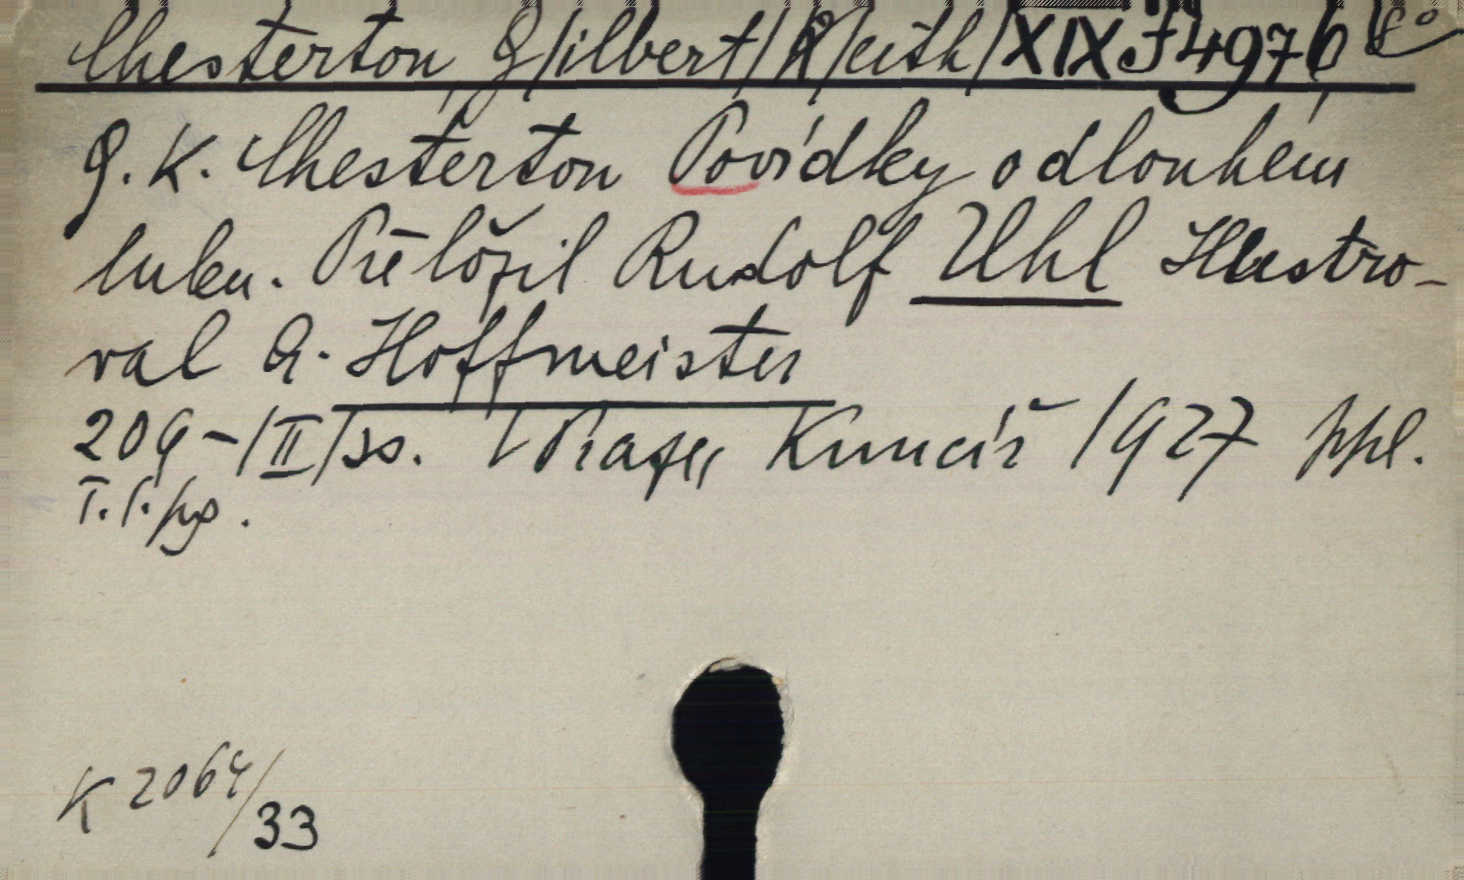 Chesterton G/ilbert/ K/eith/ XIX J 4976 8°
G. K. Chesterton Povídky o dlouhém
luku. Přeložil Rudolf Uhl Ilustro-
val A. Hoffmeister
209-/II/ss. V Praze, Kuncíř 1927 ppl.
K 2064/33